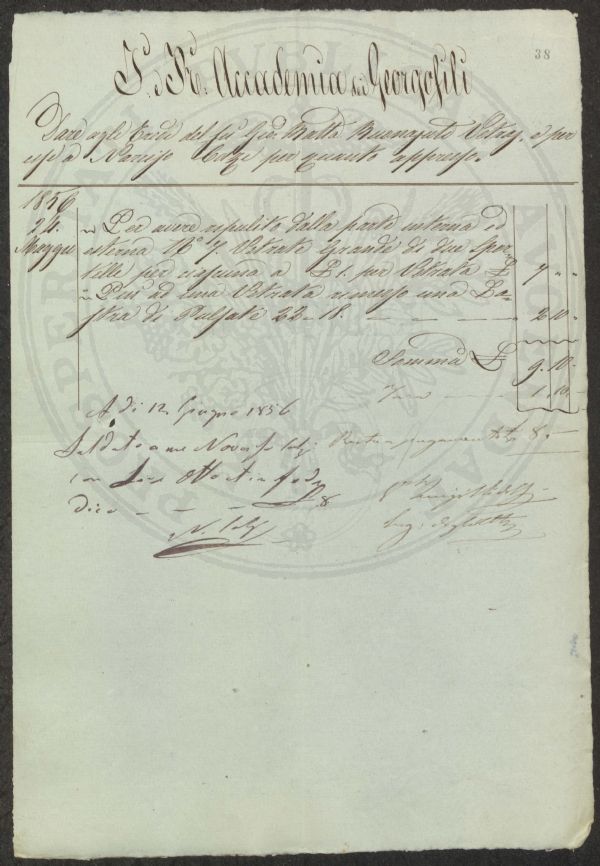 38
I. e R. Accademia dei Georgofili
Dare agli Eredi del fu Gio. Batta Buonajuti Vetraj, e per
essi a Narciso per quanto appresso.
1856
24. Maggio
Per avere ripulito dalla parte interna ed
esterna N.° 7. Vetrate Grande di due Spor-
telle per ciascuna a £ 1. per Vetrata £ 7 " "
Più ad una Vetrata rimesso una La-
stra di Pulsate 22-18. — — — 2.10.-
Somma £ 9.10.-
— 1.10.-
A dì 12 Giugno 1856
Saldato a me Narciso
con Lire Otto
dico - - - £ 8
N.
8.-
PROSPERITATI PUBLICAE